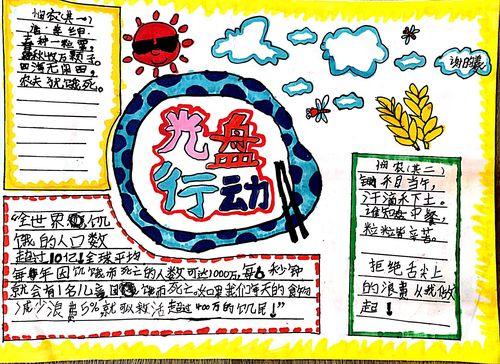 悯农(其一)
唐 李绅
春种一粒粟,
秋收万颗子。
四海无闲田,
农夫犹饿死。
光盘
行动
悯农(其二)
锄禾日当午,
汗滴禾下土。
谁知盘中餐,
粒粒皆辛苦。
拒绝舌尖上
的浪费从我做
起!
"全世界 饥
饿的人口数
超过10亿!全球平均
每年因饥饿而死亡的人数可达1000万,每 秒钟
就会有1名儿童因 饿而死亡。如果我们每天的食物
减少浪费5%就可以救活超过400万的饥民!"